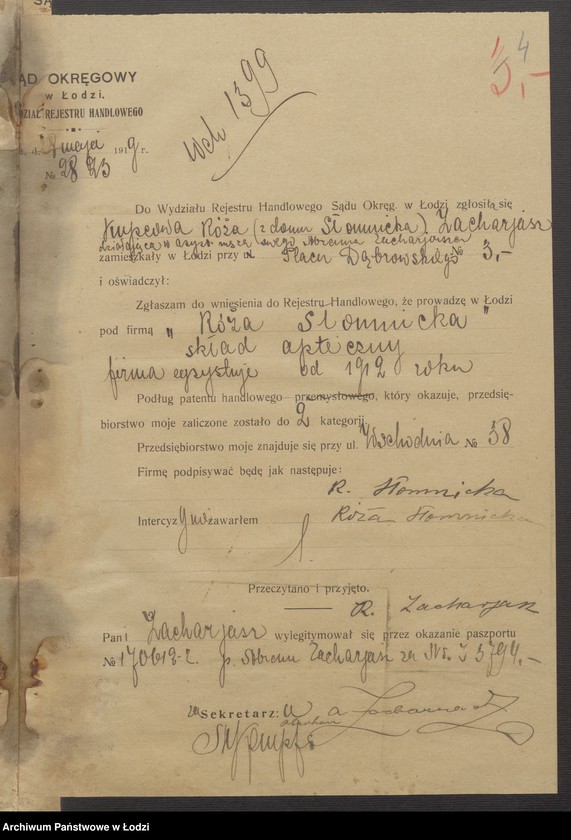 4
5,-
wch 1399
ĄD OKRĘGOWY
w Łodzi.
DZIAŁ REJESTRU HANDLOWEGO
d. maja 1919 r.
№ 2823
Do Wydziału Rejestru Handlowego Sądu Okręg. w Łodzi zgłosiła się
Róża (z domu Słomnicka) Zacharjasz
działająca w asyst. męża swego Abrama Zacharjasza
zamieszkały w Łodzi przy Placu Dąbrowskiego № 3,-
i oświadczył:
Zgłaszam do wniesienia do Rejestru Handlowego, że prowadzę w Łodzi
pod firmą „Róża Słomnicka"
skład apteczny
firma egzystuje od 1912 roku
Podług patentu handlowego przemysłowego, który okazuje, przedsię-
biorstwo moje zaliczone zostało do 2 kategorji
Przedsiębiorstwo moje znajduje się przy ul. Wschodnia № 38
Firmę podpisywać będę jak następuje:
R. Słomnicka
Intercyzy nie zawarłem Róża Słomnicka
Przeczytano i przyjęto.
R. Zacharjasz
Pani Zacharjasz wylegitymował się przez okazanie paszportu
№ 170612 p. Abram Zacharjasz za №
Sekretarz:
Archiwum Państwowe w Łodzi